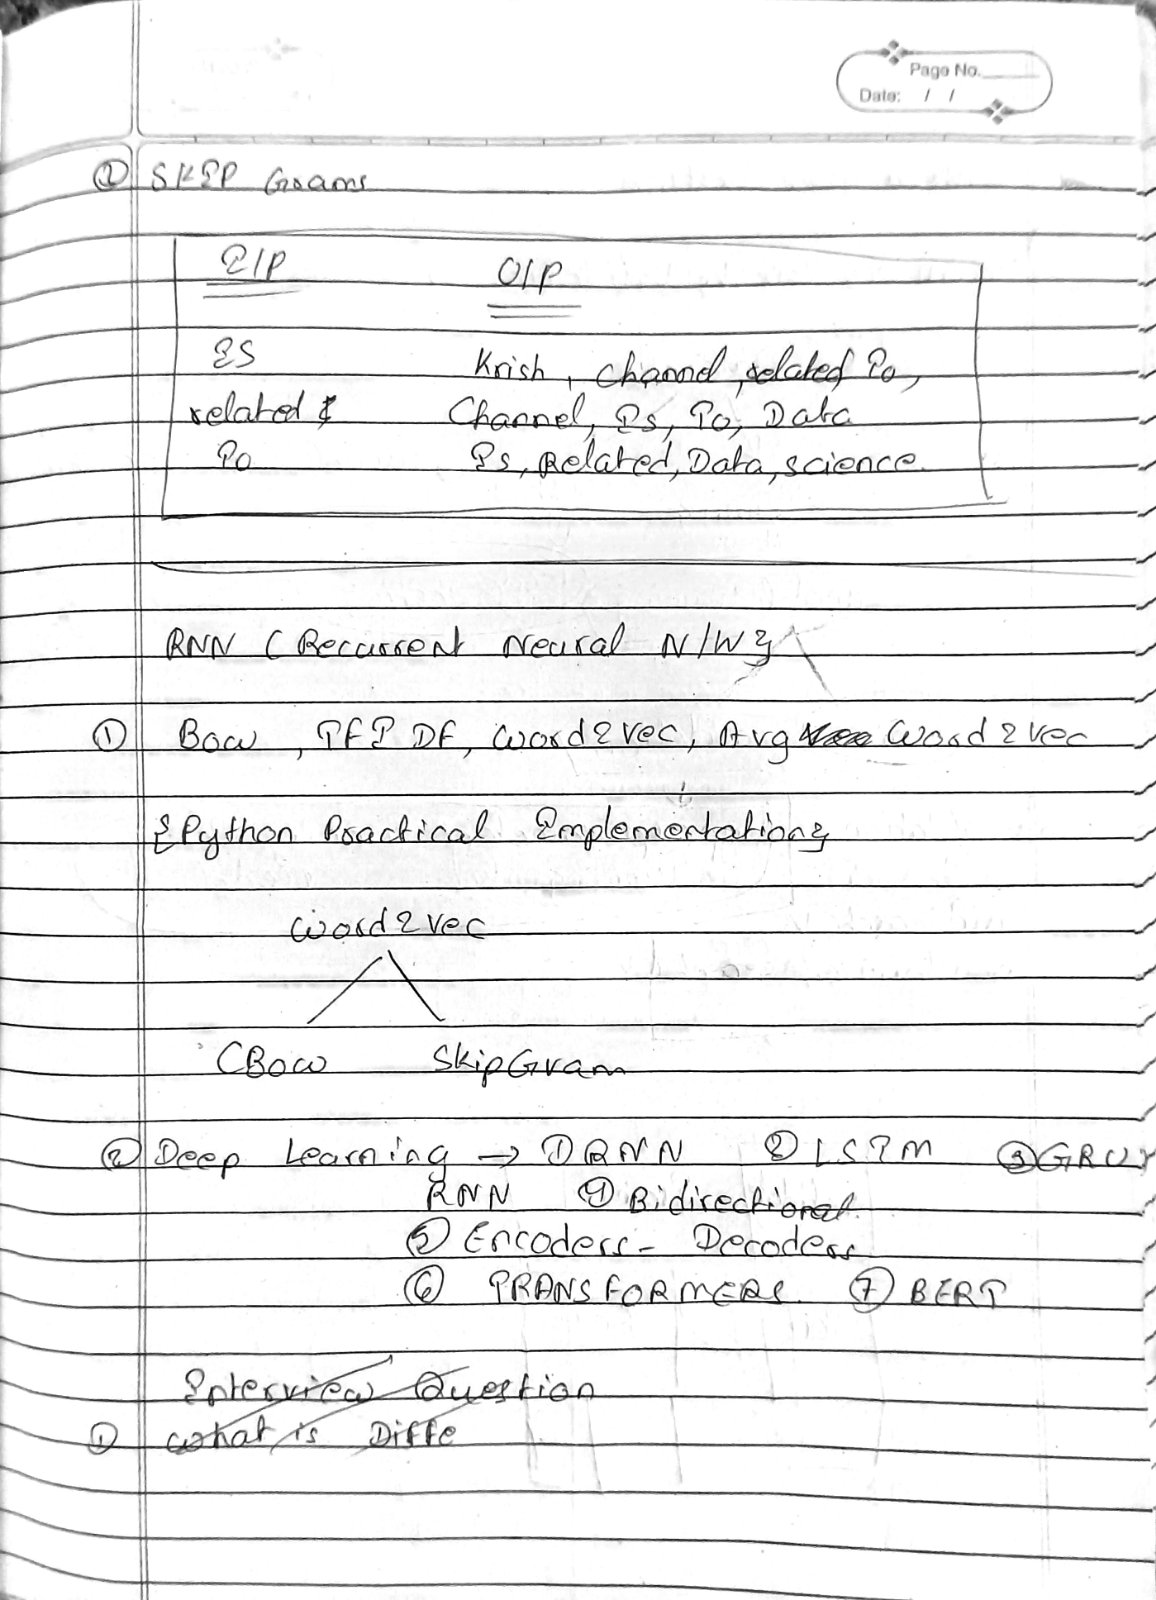 Page No.
Date: / /
② SKIP Grams
I/P O/P
IS Krish, channel, related To,
related Channel, Is, To, Data
To Is, Related, Data, science.
RNN ( Recurrent Neural N/W }
① Bow, TFIDF, word2vec, Avg word2vec
{Python Practical Implementation}
word2vec
CBow SkipGram
② Deep Learning → ① RNN ② LSTM ③ GRU
RNN ④ Bidirectional
⑤ Encoders - Decoders
⑥ TRANSFORMERS. ⑦ BERT
Interview Question
① what is Diffe